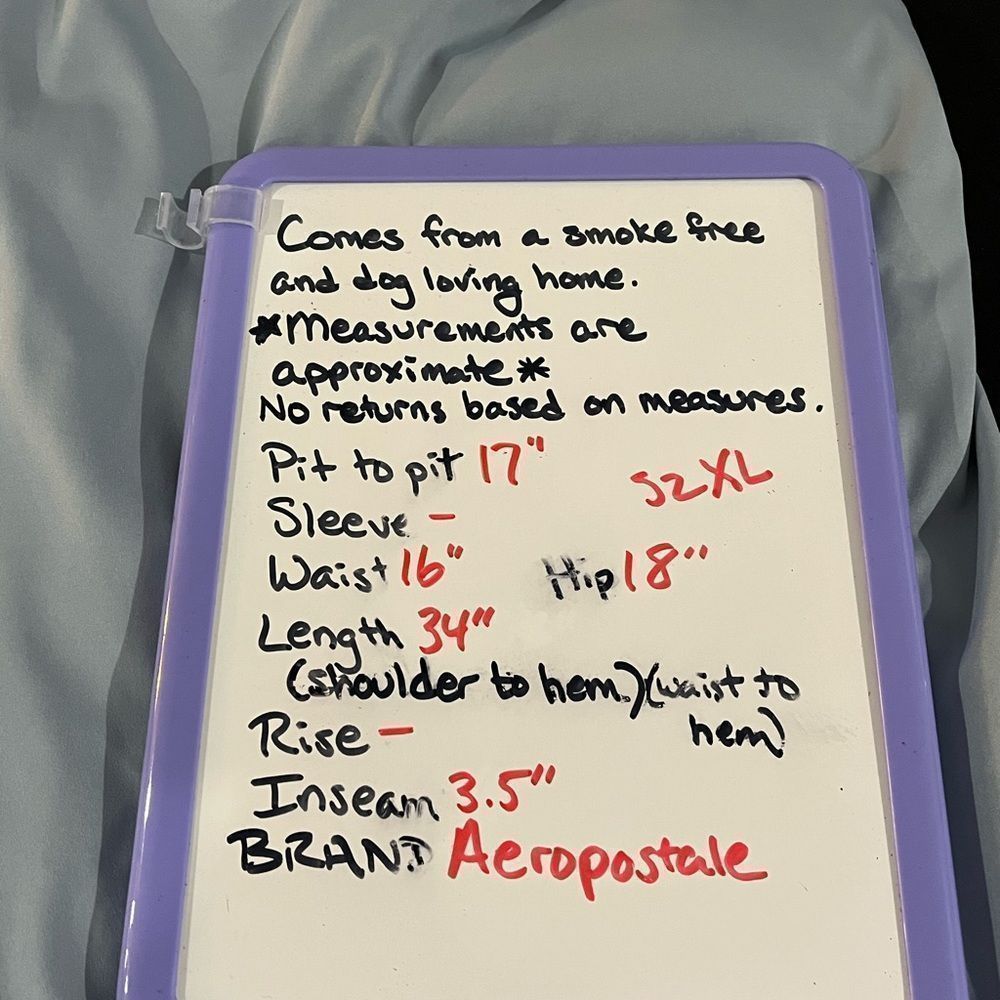 Comes from a smoke free
and dog loving home.
*Measurements are
approximate*
No returns based on measures.
Pit to pit 17"
SZ XL
Sleeve -
Waist 16" Hip 18"
Length 34"
(shoulder to hem.) (waist to
hem)
Rise -
Inseam 3.5"
BRAND Aeropostale